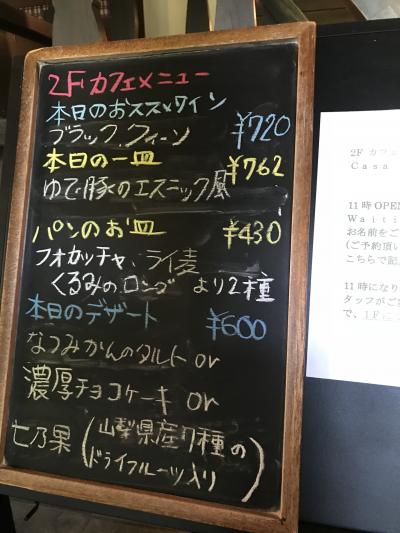 2Fカフェメニュー
本日のおススメワイン
ブラック、クィーン ¥720
本日の一皿 ¥762
ゆで豚のエスニック風
パンのお皿 ¥430
フォカッチャ、ライ麦
くるみのロンゴ より2種
本日のデザート ¥600
なつみかんのタルト or
濃厚チョコケーキ or
七乃果(山梨県産7種の
ドライフルーツ入り)
2F カフェ
Casa
11時OPEN
Waiti
お名前をご
(ご予約頂い
こちらで記
11時になり
タッフがご
で、1Fに